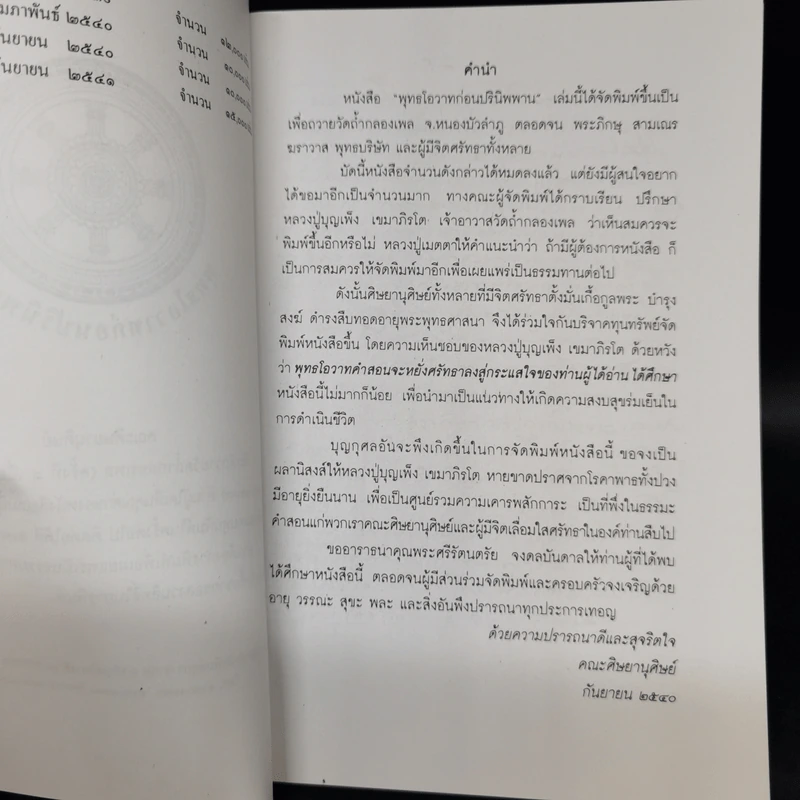 มภาพันธ์ ๒๕๔๐ จำนวน ๑๒,๐๐๐
กันยายน ๒๕๔๐ จำนวน ๑๐,๐๐๐
กันยายน ๒๕๔๑ จำนวน ๑๐,๐๐๐
จำนวน ๑๕,๐๐๐
คำนำ
หนังสือ "พุทธโอวาทก่อนปรินิพพาน" เล่มนี้ได้จัดพิมพ์ขึ้นเป็น
เพื่อถวายวัดถ้ำกลองเพล จ.หนองบัวลำภู ตลอดจน พระภิกษุ สามเณร
ฆราวาส พุทธบริษัท และผู้มีจิตศรัทธาทั้งหลาย
บัดนี้หนังสือจำนวนดังกล่าวได้หมดลงแล้ว แต่ยังมีผู้สนใจอยาก
ได้ขอมาอีกเป็นจำนวนมาก ทางคณะผู้จัดพิมพ์ได้กราบเรียน ปรึกษา
หลวงปู่บุญเพ็ง เขมาภิรโต เจ้าอาวาสวัดถ้ำกลองเพล ว่าเห็นสมควรจะ
พิมพ์ขึ้นอีกหรือไม่ หลวงปู่เมตตาให้คำแนะนำว่า ถ้ามีผู้ต้องการหนังสือ ก็
เป็นการสมควรให้จัดพิมพ์มาอีกเพื่อเผยแพร่เป็นธรรมทานต่อไป
ดังนั้นศิษยานุศิษย์ทั้งหลายที่มีจิตศรัทธาตั้งมั่นเกื้อกูลพระ บำรุง
สงฆ์ ดำรงสืบทอดอายุพระพุทธศาสนา จึงได้ร่วมใจกันบริจาคทุนทรัพย์จัด
พิมพ์หนังสือขึ้น โดยความเห็นชอบของหลวงปู่บุญเพ็ง เขมาภิรโต ด้วยหวัง
ว่า พุทธโอวาทคำสอนจะหยั่งศรัทธาลงสู่กระแสใจของท่านผู้ได้อ่าน ได้ศึกษา
หนังสือนี้ไม่มากก็น้อย เพื่อนำมาเป็นแนวทางให้เกิดความสงบสุขร่มเย็นใน
การดำเนินชีวิต
บุญกุศลอันจะพึงเกิดขึ้นในการจัดพิมพ์หนังสือนี้ ขอจงเป็น
ผลานิสงส์ให้หลวงปู่บุญเพ็ง เขมาภิรโต หายขาดปราศจากโรคาพาธทั้งปวง
มีอายุยิ่งยืนนาน เพื่อเป็นศูนย์รวมความเคารพสักการะ เป็นที่พึ่งในธรรมะ
คำสอนแก่พวกเราคณะศิษยานุศิษย์และผู้มีจิตเลื่อมใสศรัทธาในองค์ท่านสืบไป
ขออาราธนาคุณพระศรีรัตนตรัย จงดลบันดาลให้ท่านผู้ที่ได้พบ
ได้ศึกษาหนังสือนี้ ตลอดจนผู้มีส่วนร่วมจัดพิมพ์และครอบครัวจงเจริญด้วย
อายุ วรรณะ สุขะ พละ และสิ่งอันพึงปรารถนาทุกประการเทอญ
ด้วยความปรารถนาดีและสุจริตใจ
คณะศิษยานุศิษย์
กันยายน ๒๕๔๐